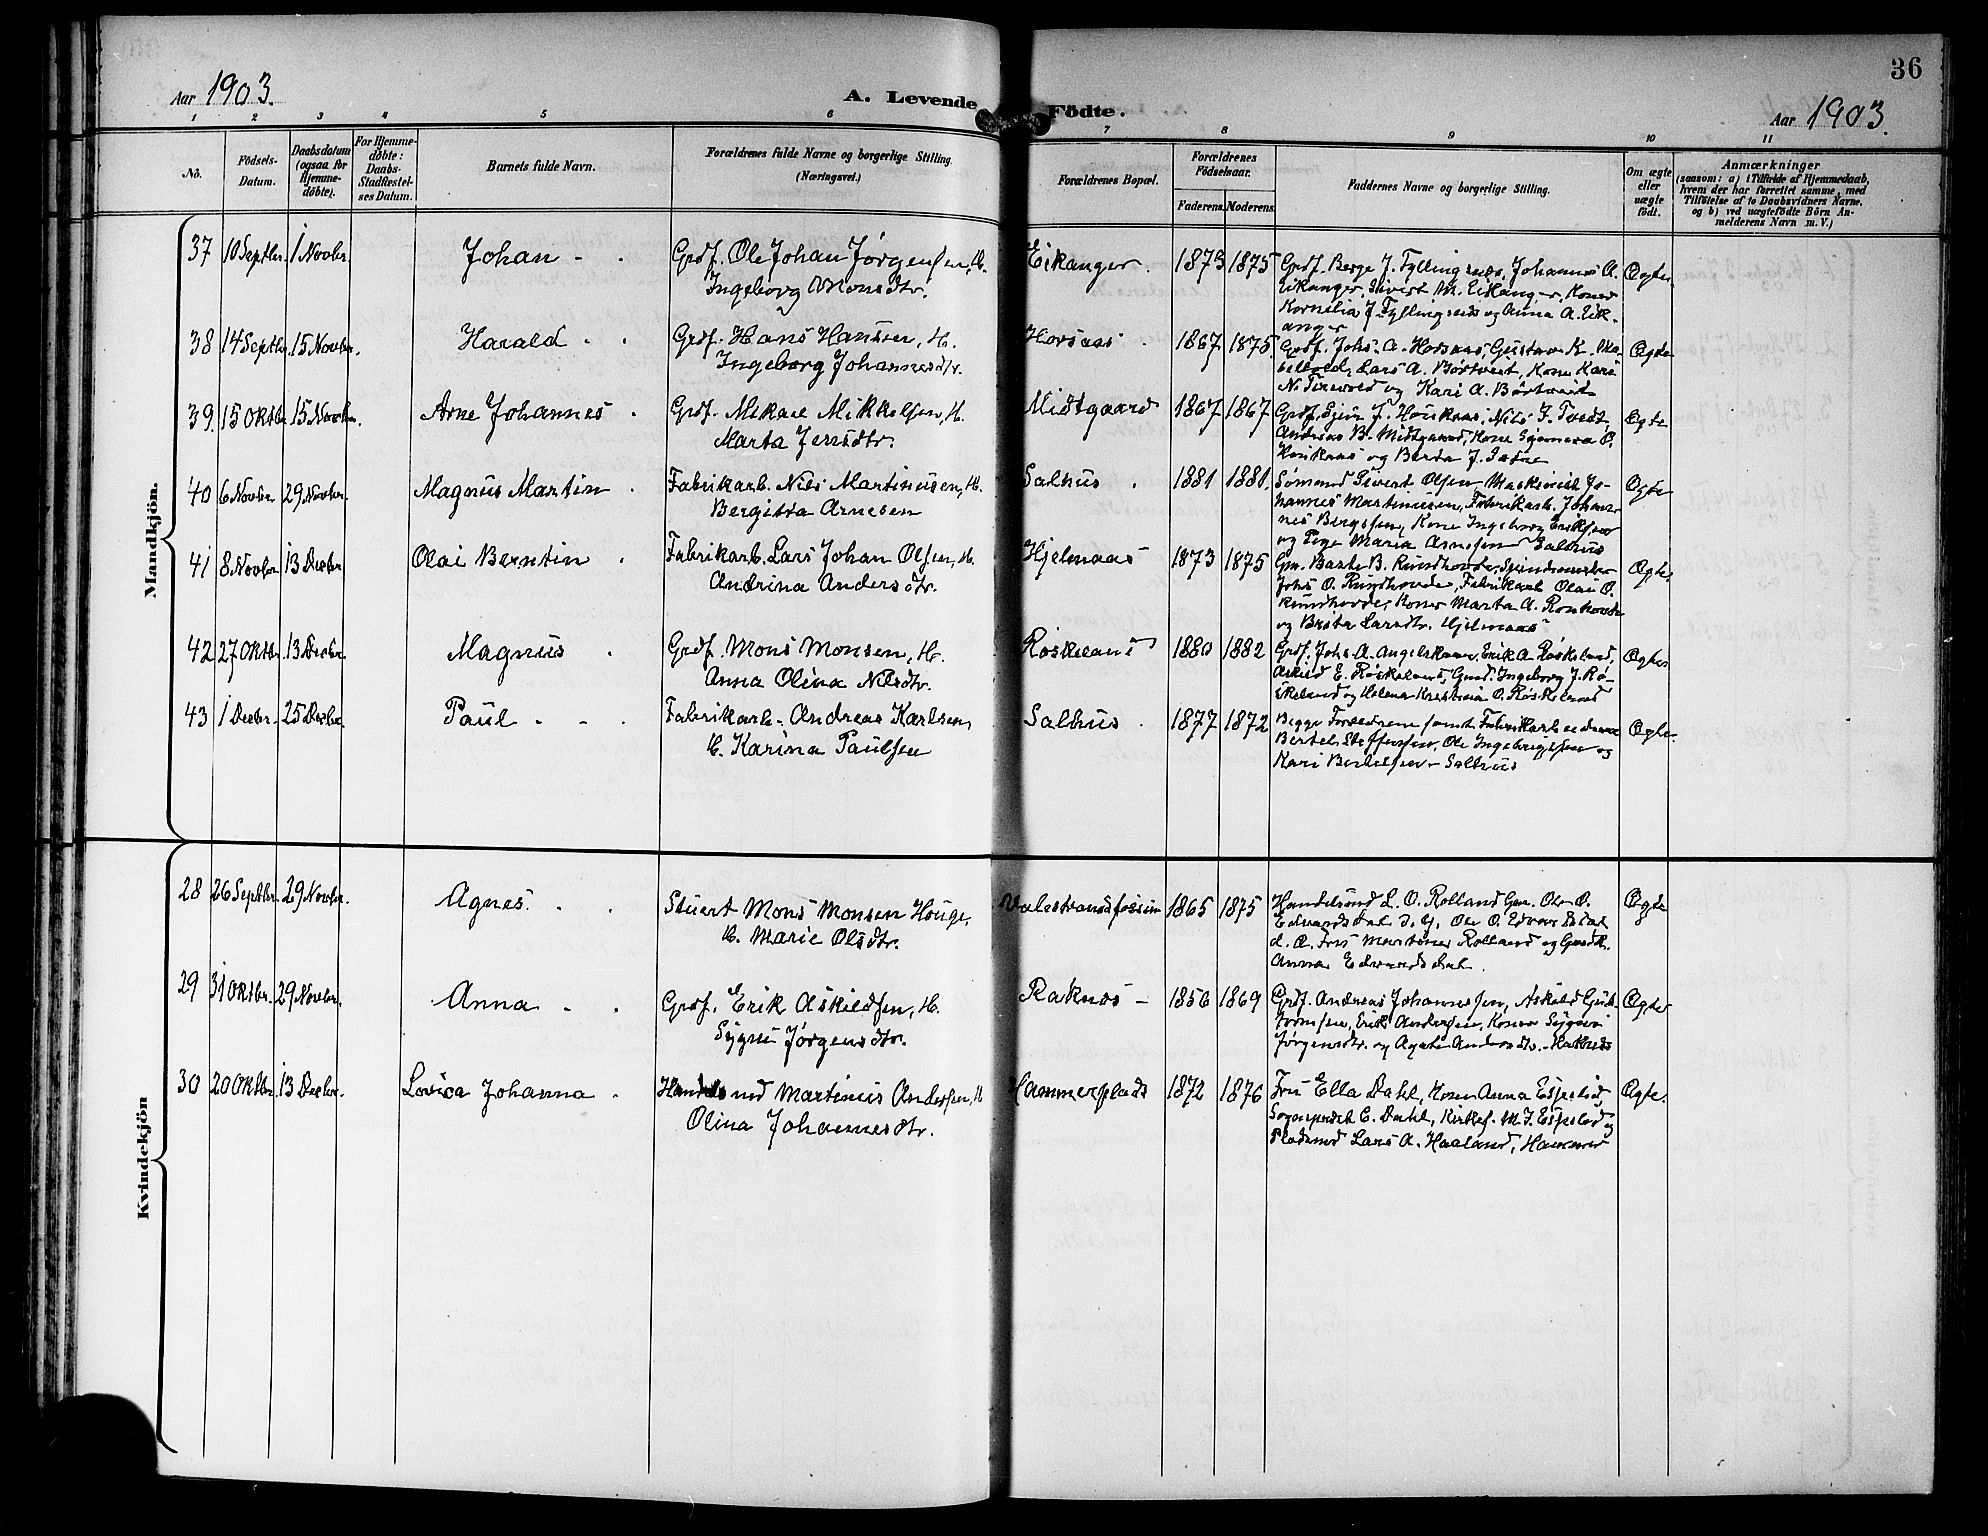 36
Aar 1903.
A. Levende Födte.
Aar 1903.
1 2 3 4 5 6 7 8 9 10 11
Nô.
Födsels-Datum.
Daabsdatum (ogsaa for Hjemme-döbte).
For Hjemme-döbte: Daabs-Stadfæstel-ses Datum.
Barnets fulde Navn.
Forældrenes fulde Navne og borgerlige Stilling. (Næringsvei.)
Forældrenes Bopæl.
Forældrenes Födselsaar.
Faderens. Moderens.
Faddernes Navne og borgerlige Stilling.
Om ægte eller uægte födt.
Anmærkninger
(saasom: a) i Tilfælde af Hjemmedaab,
hvem der har forrettet samme, med
Tilföielse af to Daabsvidners Navne.
og b) ved uægtefödte Börn An-
melderens Navn m. V.)
Mandkjön.
37 10 Septbr. 1 Novbr. Johan - - Grdf. Ole Johan Jørgensen, H. Eikanger. 1873 1875 Grdf. Berge J. Fyllingsnes, Johannes A. Ægte.
Ingeborg Monsdtr. Eikanger, Sivert M. Eikanger, Koner
Kornelia J. Fyllingsnes og Anna A. Eik-
anger
38 14 Septbr. 15 Novbr. Harald - - Grdf. Hans Hansen, H. Horsaas . 1867 1875. Grdf. Johs. A. Horsaas, Gustav K.
Ingeborg Johannesdtr. Lars A. Børtveit, Kone Kari Ægte
N. og Kari A. Børtveit
39. 15 Oktbr. 15 Novbr. Arne Johannes . Grdf. Mikael Mikkelsen, H. Midtgaard 1867 1867 Grdf. J. Houkaas, Nils J. Tvedt, Ægte
Marta Jensdtr. Andreas B. Midtgaard, Kone
Houkaas og Berta J.
40 6 Novbr. 29 Novbr. Magnus Martin . Fabrikarb. Nils Martinusen, H. Salhus . 1881 1881. Sömand Sivert Olsen, Maskinist Jo- Ægte
Bergitta Arnesen hannes Martinusen, Fabrikarb. Johan-
nes Bergesen, Kone Ingeborg Eriksen
og Pige Maria Arnesen Salhus
41 8 Novbr. 13 Decbr. Olai Berntin . Fabrikarb. Lars Johan Olsen, H. Hjelmaas 1873 1875 B. Rundhovde,
Andrina Andersdtr. Johs O. Rundhovde, Fabrikarb Olai O. Ægte.
Rundhovde, Koner Marta A.
og Brita Larsdtr. Hjelmaas
42 27 Oktbr. 13 Decbr. Magnus . Grdf. Mons Monsen, H. Røskeland 1880 1882 Grdf. Johs. A. Angelskaar, Erik A. Røskeland, Ægte
Anna Olina Nilsdtr. Askild E. Røskeland, Gmd. Ingeborg J. Rø-
skeland og Helena Kristina O. Røskeland
43 1 Decbr. 25 Decbr. Paul - - . Fabrikarb. Andreas Karlsen, Salhus . 1877 1872 Begge Forældrene samt Fabrikarbeiderne Ægte.
H. Karina Paulsen Bertel Steffensen, Ole Ingebrigtsen og
Kari Bertelsen - Salhus
Kvindekjön
28 26 Septbr. 29 Novbr. Agnes. . . Stuert Mons Monsen Houge, Valestrandsfossen 1865 1875 Handelsmd L. O. Rolland Gm. Ole O. Ægte
H. Marie Olsdtr. Edvardsdal d. y, Ole O. Edvardsdal
d. æ. Fru Martine Rolland og Gaardk.
Anna Edvardsdal.
29 31 Oktbr. 29 Novbr. Anna . . Grdf. Erik Askildsen, H. Raknes - 1856 1869 Grdf. Andreas Johannessen, Askild Gut- Ægte
Sygni Jørgensdtr. tormsen, Erik Andersen, Koner Sygni
Jørgensdtr. og Agate Andersdtr. - Raknes
30 20 Oktbr. 13 Decbr. Lovica Johanna . Handelsmd Martinus Andersen, H Hammersplads 1872 1876 Fru Ella Dahl, Kone Anna Espelid, Ægte.
Olina Johannesdtr. Sogneprest E. Dahl, Kirkes. M. J. Espelid og
Pladsmd Lars A. Haaland, Hammer